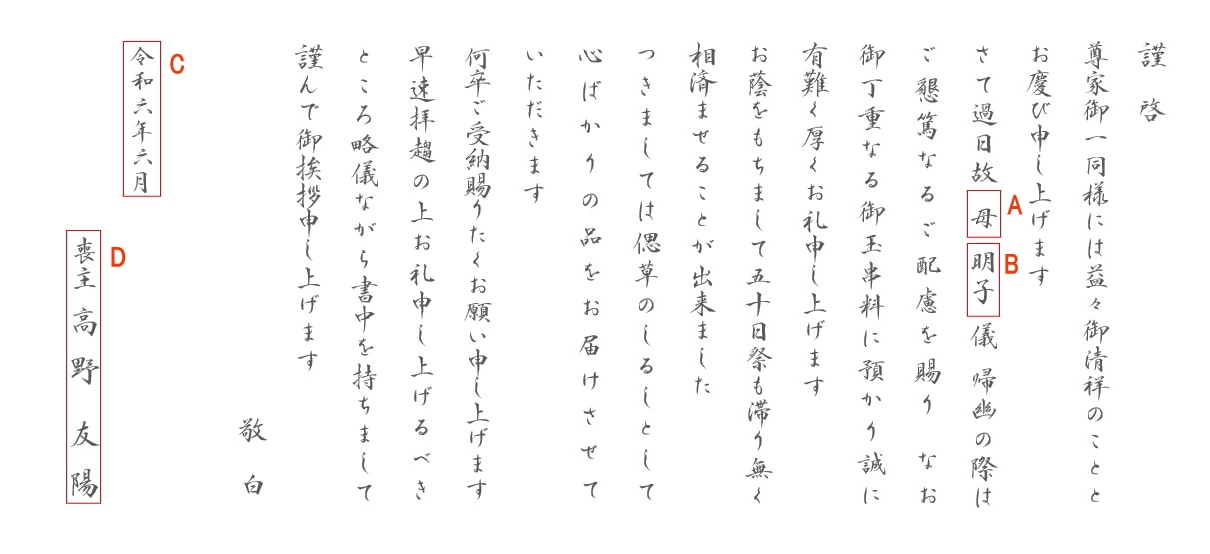 謹啓
尊家御一同様には益々御清祥のことと
お慶び申し上げます
さて過日故 母 明子 儀 帰幽の際は
ご懇篤なるご配慮を賜り なお
御丁重なる御玉串料に預かり誠に
有難く厚くお礼申し上げます
お蔭をもちまして五十日祭も滞り無く
相済ませることが出来ました
つきましては偲草のしるしとして
心ばかりの品をお届けさせて
いただきます
何卒ご受納賜りたくお願い申し上げます
早速拝趨の上お礼申し上げるべき
ところ略儀ながら書中を持ちまして
謹んで御挨拶申し上げます
敬白
令和六年六月
喪主 高野 友陽
A
B
C
D